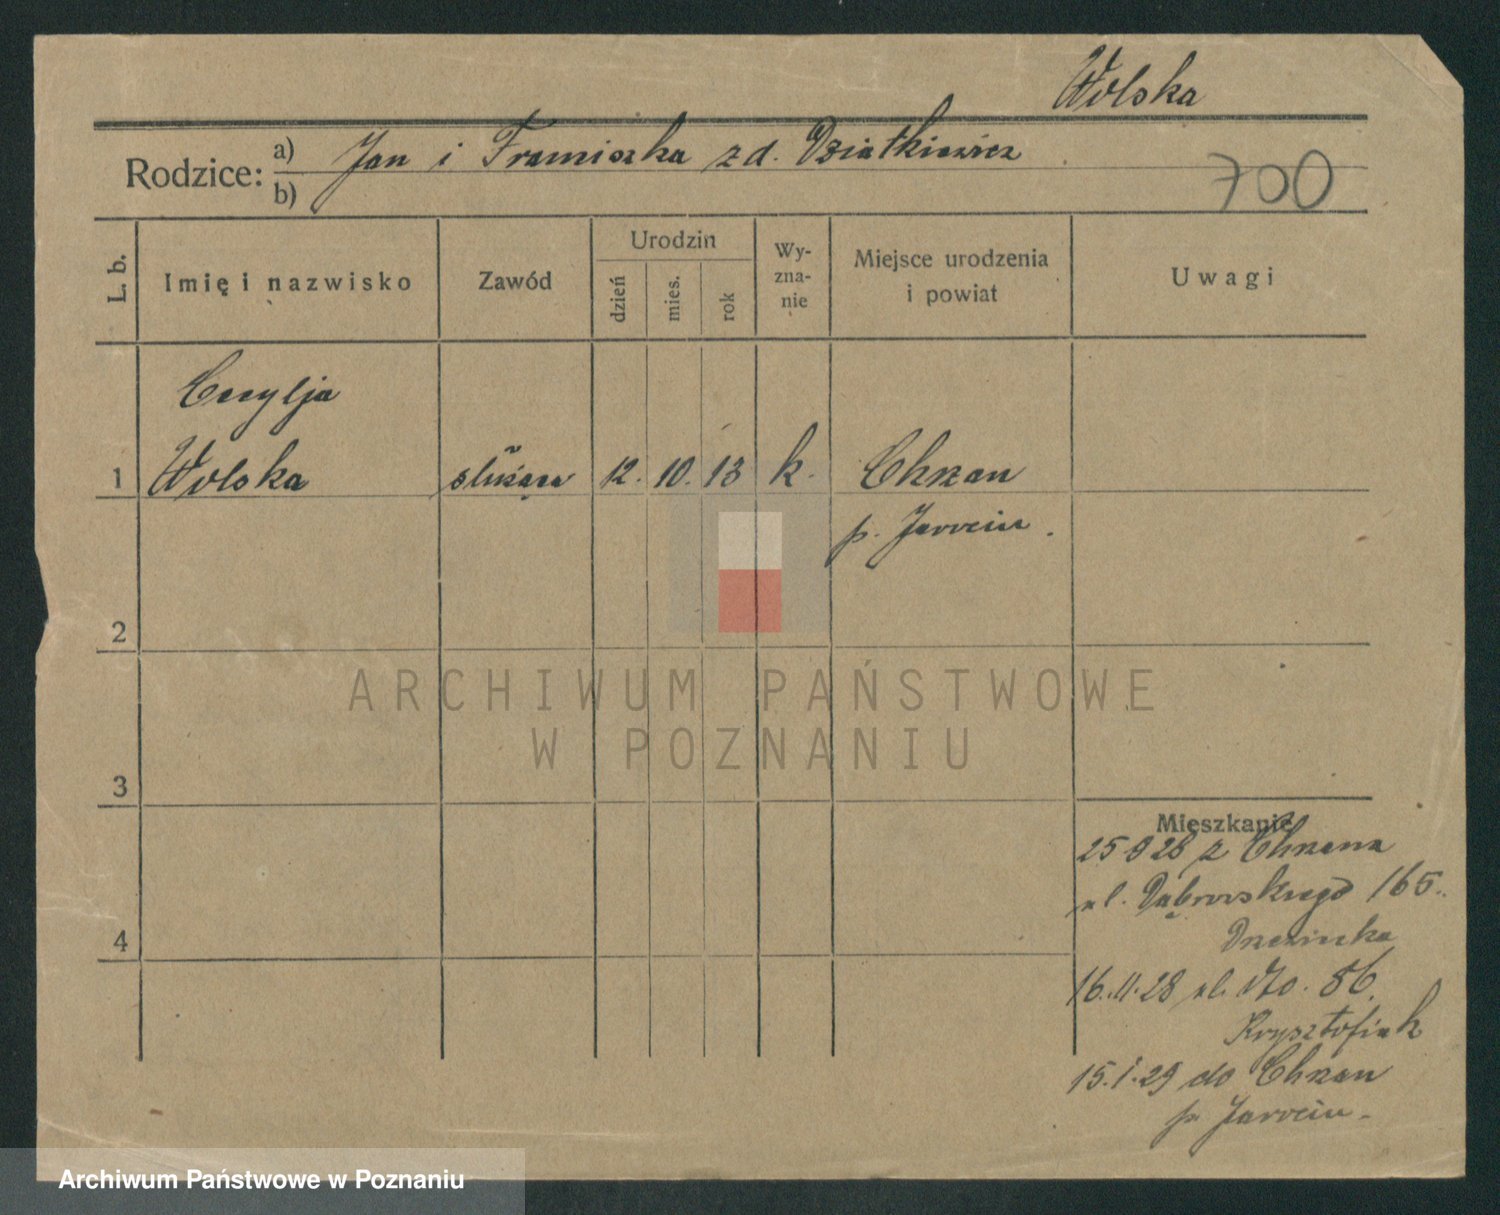 Wolska
Rodzice: a) Jan i Franciszka z d. Działkiewicz
b)
700
L. b.
Imię i nazwisko
Zawód
Urodzin
dzień
mies.
rok
Wy-
zna-
nie
Miejsce urodzenia
i powiat
Uwagi
Cecylja
1 Wolska służąca 12. 10. 13 k. Chrzan
p. Jarocin.
2
ARCHIWUM PAŃSTWOWE
W POZNANIU
3
Mieszkanie
25 8 28 z Chrzana
ul. Dąbrowskiego 165.
4
16.11.28 ul. 86.
Krysztofiak
15.1.29 do Chrzan
p. Jarocin.
Archiwum Państwowe w Poznaniu